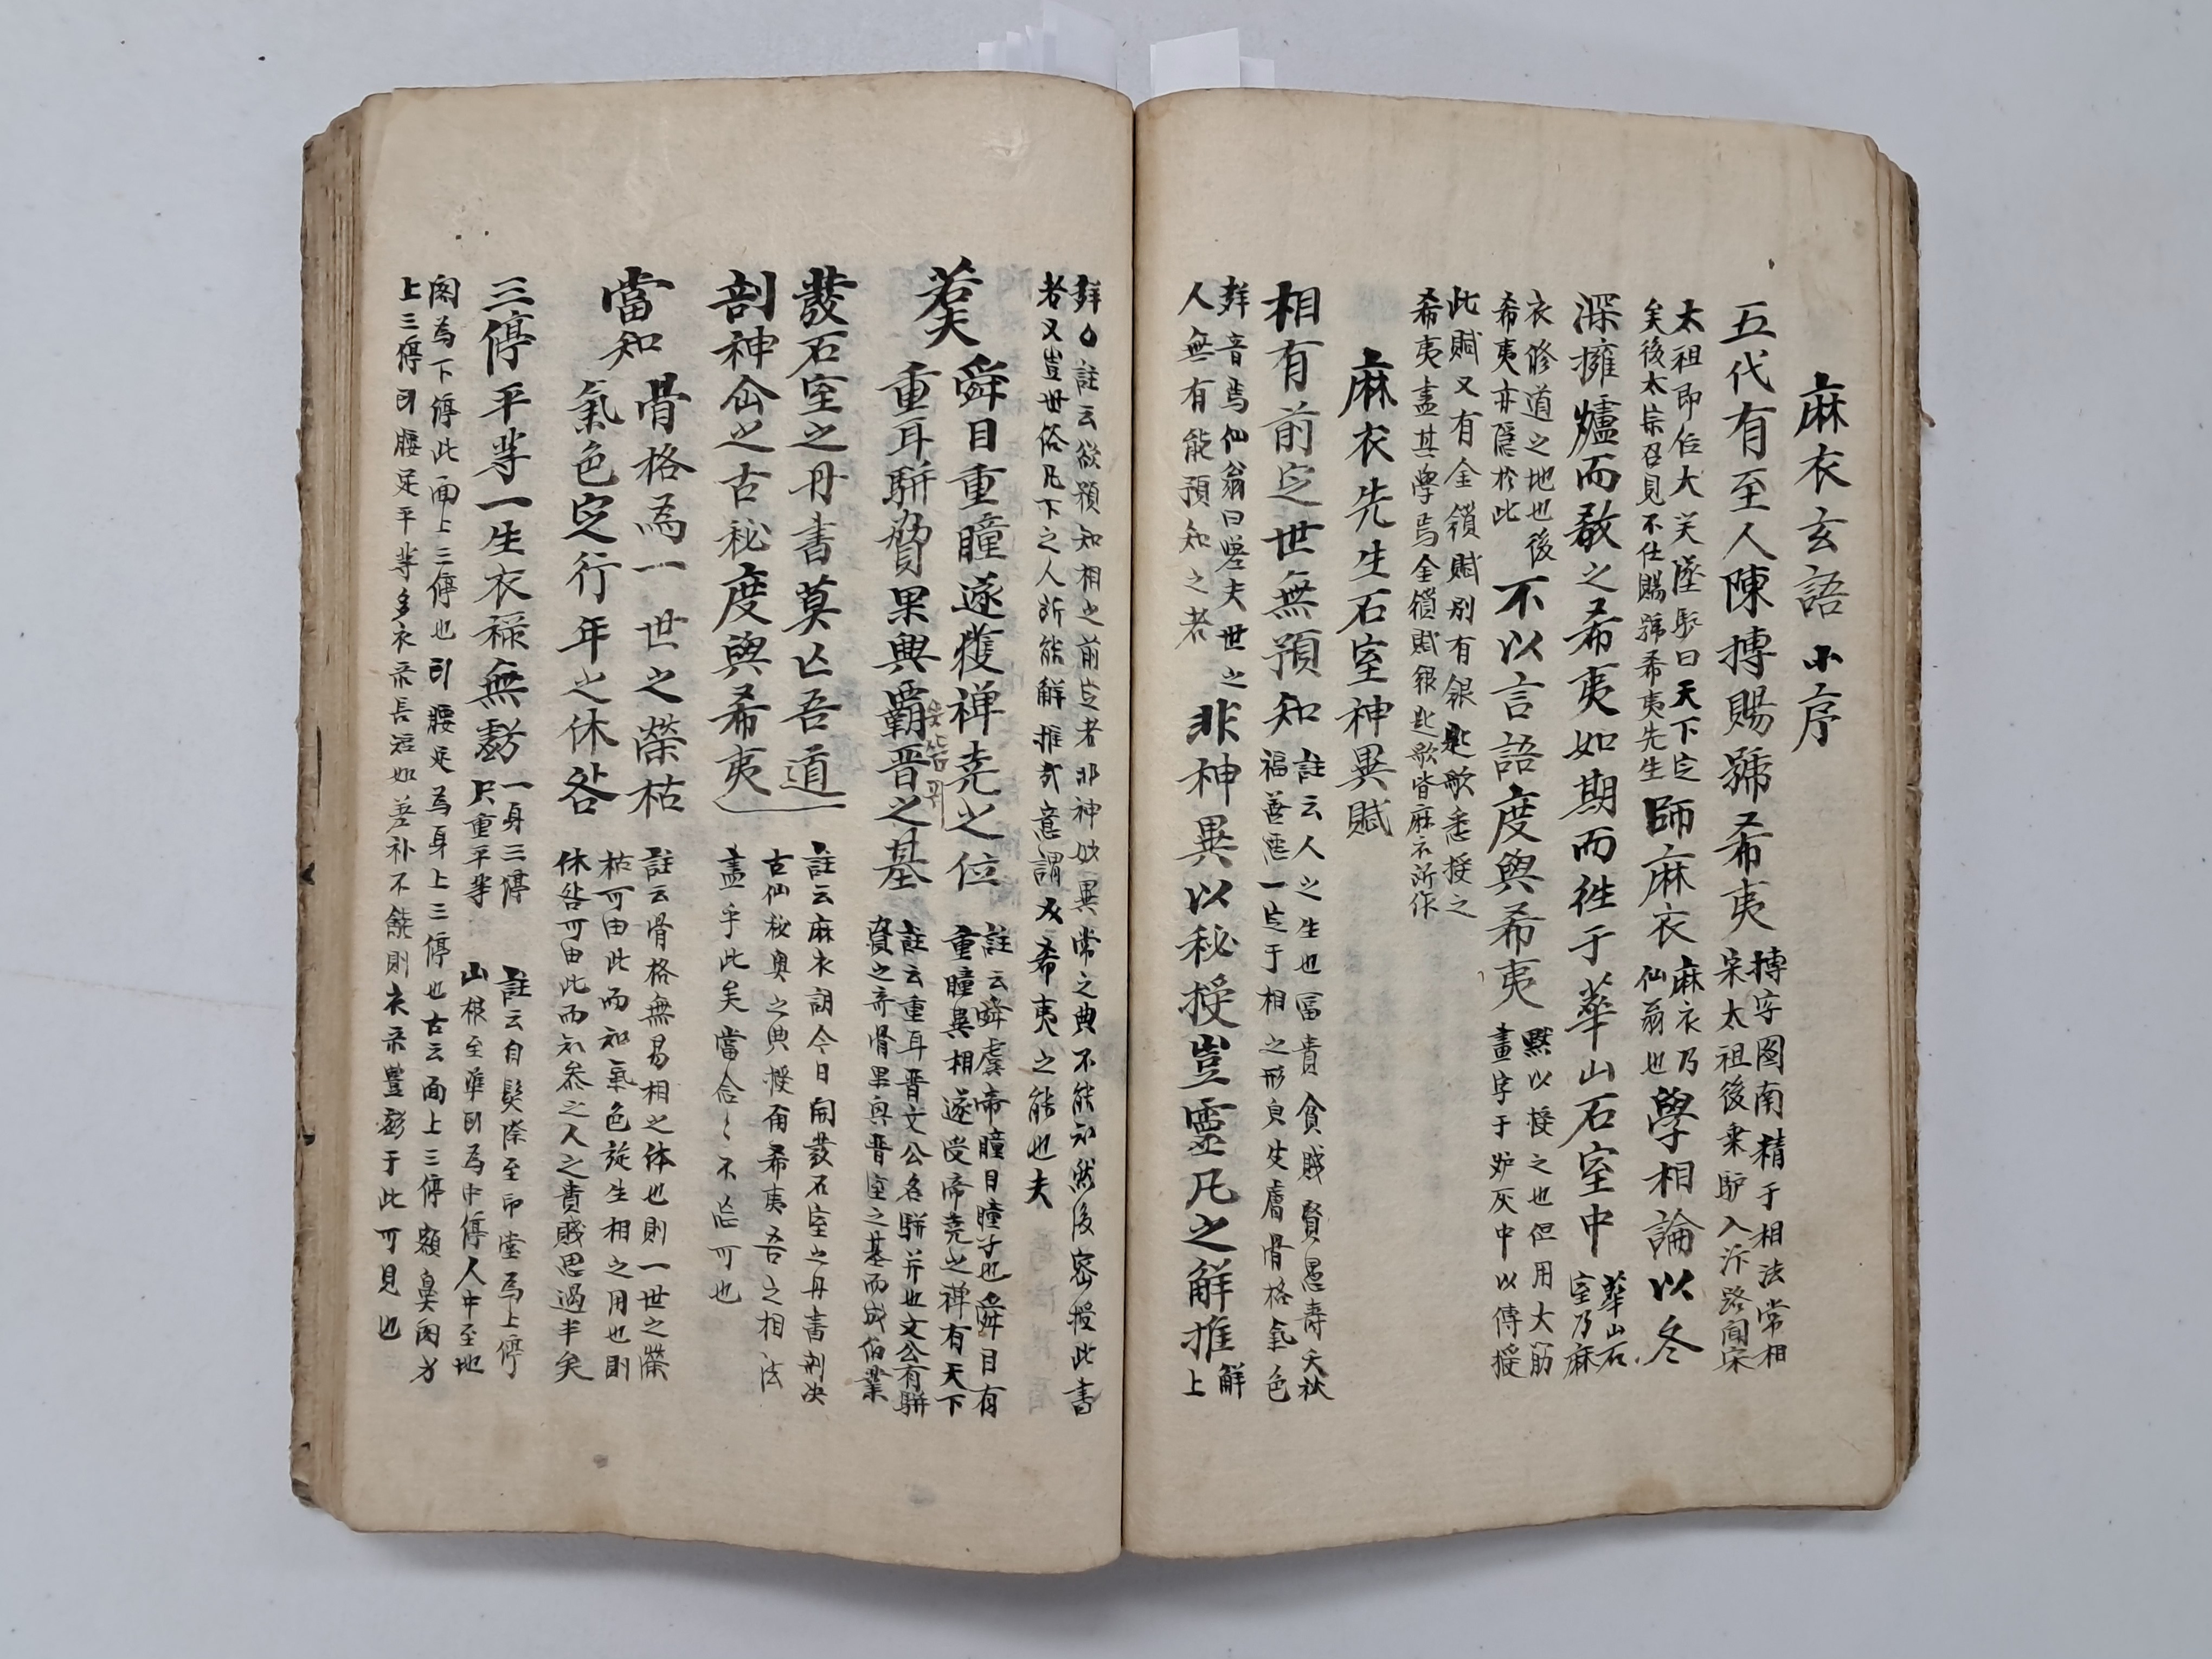 麻衣玄語小序
五代有至人陳摶賜號希夷
摶字圖南精于相法常相
宋太祖後乗馿入汴路聞宋
太祖即位大笑墜馿曰天下定
矣後太宗召見不仕賜號希夷先生
師麻衣
麻衣乃
仙翁也
學相論以冬
深擁爐而敎之希夷如期而徃于華山石室中
華山石
室乃麻
衣修道之地也後
希夷亦隱於此
不以言語度與希夷
默以授之也但用大筋
畫字于炉灰中以傳授
此賦又有金鎖賦別有銀匙歌悉授之
希夷盡其學焉金鎖賦銀匙歌皆麻衣所作
麻衣先生石室神異賦
相有前定世無預知
註云人之生也冨貴貧賎賢愚壽夭秋
福善悪一定于相之形皃皮膚骨格氣色
觧音焉仙翁曰嗟夫世之
人無有能預知之者
非神異以秘授豈靈凡之觧推
觧
上
觧 註云欲預知相之前定者非神妙異常之典不能知然後密授此書
者又豈世俗凡下之人所能解推哉意謂 希夷之能也夫
若夫
舜目重瞳遂獲禅堯之位
重耳駢脅果興覇晉之基
註云舜虞帝瞳目瞳子也舜目有
重瞳異相遂受帝堯之禅有天下
註云重耳晋文公名駢并也文公有駢
脅之奇骨果興晋室之基而成伯業
發石室之丹書莫亡吾道
剖神仙之古秘度與希夷
註云麻衣謂今日開發石室之丹書剖决
古仙秘奥之典授爾希夷吾之相法
盡乎此矣當念〻不忘可也
當知
骨格為一世之榮枯
氣色定行年之休咎
註云骨格無易相之体也則一世之榮
枯可由此而知氣色旋生相之用也則
休咎可由此而知矣之人之貴賎思過半矣
三停平等一生衣祿無虧
一身三停
只重平等
註云自髮際至印堂為上停
山根至準即為中停人中至地
閣為下停此面上三停也即腰足為身上三停也古云面上三停額鼻閣身
上三停即腰足平等多衣禄長短如差补不能則衣禄豊虧于此可見也